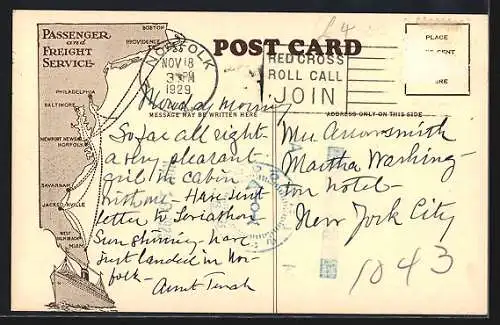 PASSENGER
and
FREIGHT
SERVICE
BOSTON
PROVIDENCE
PHILADELPHIA
BALTIMORE
NEWPORT NEWS
NORFOLK
SAVANNAH
JACKSONVILLE
WEST PALM BEACH
MIAMI
NORFOLK
NOV 18
3 PM
1929
POST CARD
RED CROSS
ROLL CALL
JOIN
PLACE
MESSAGE MAY BE WRITTEN HERE
ADDRESS ONLY ON THIS SIDE
Monday Morning
So far all right
a very pleasant
girl in cabin
with me - Have sent
letter to
Sun shining - have
just landed in Nor-
folk -
Aunt
Mrs Arrowsmith
Martha Washing-
ton Hotel -
New York City
1043